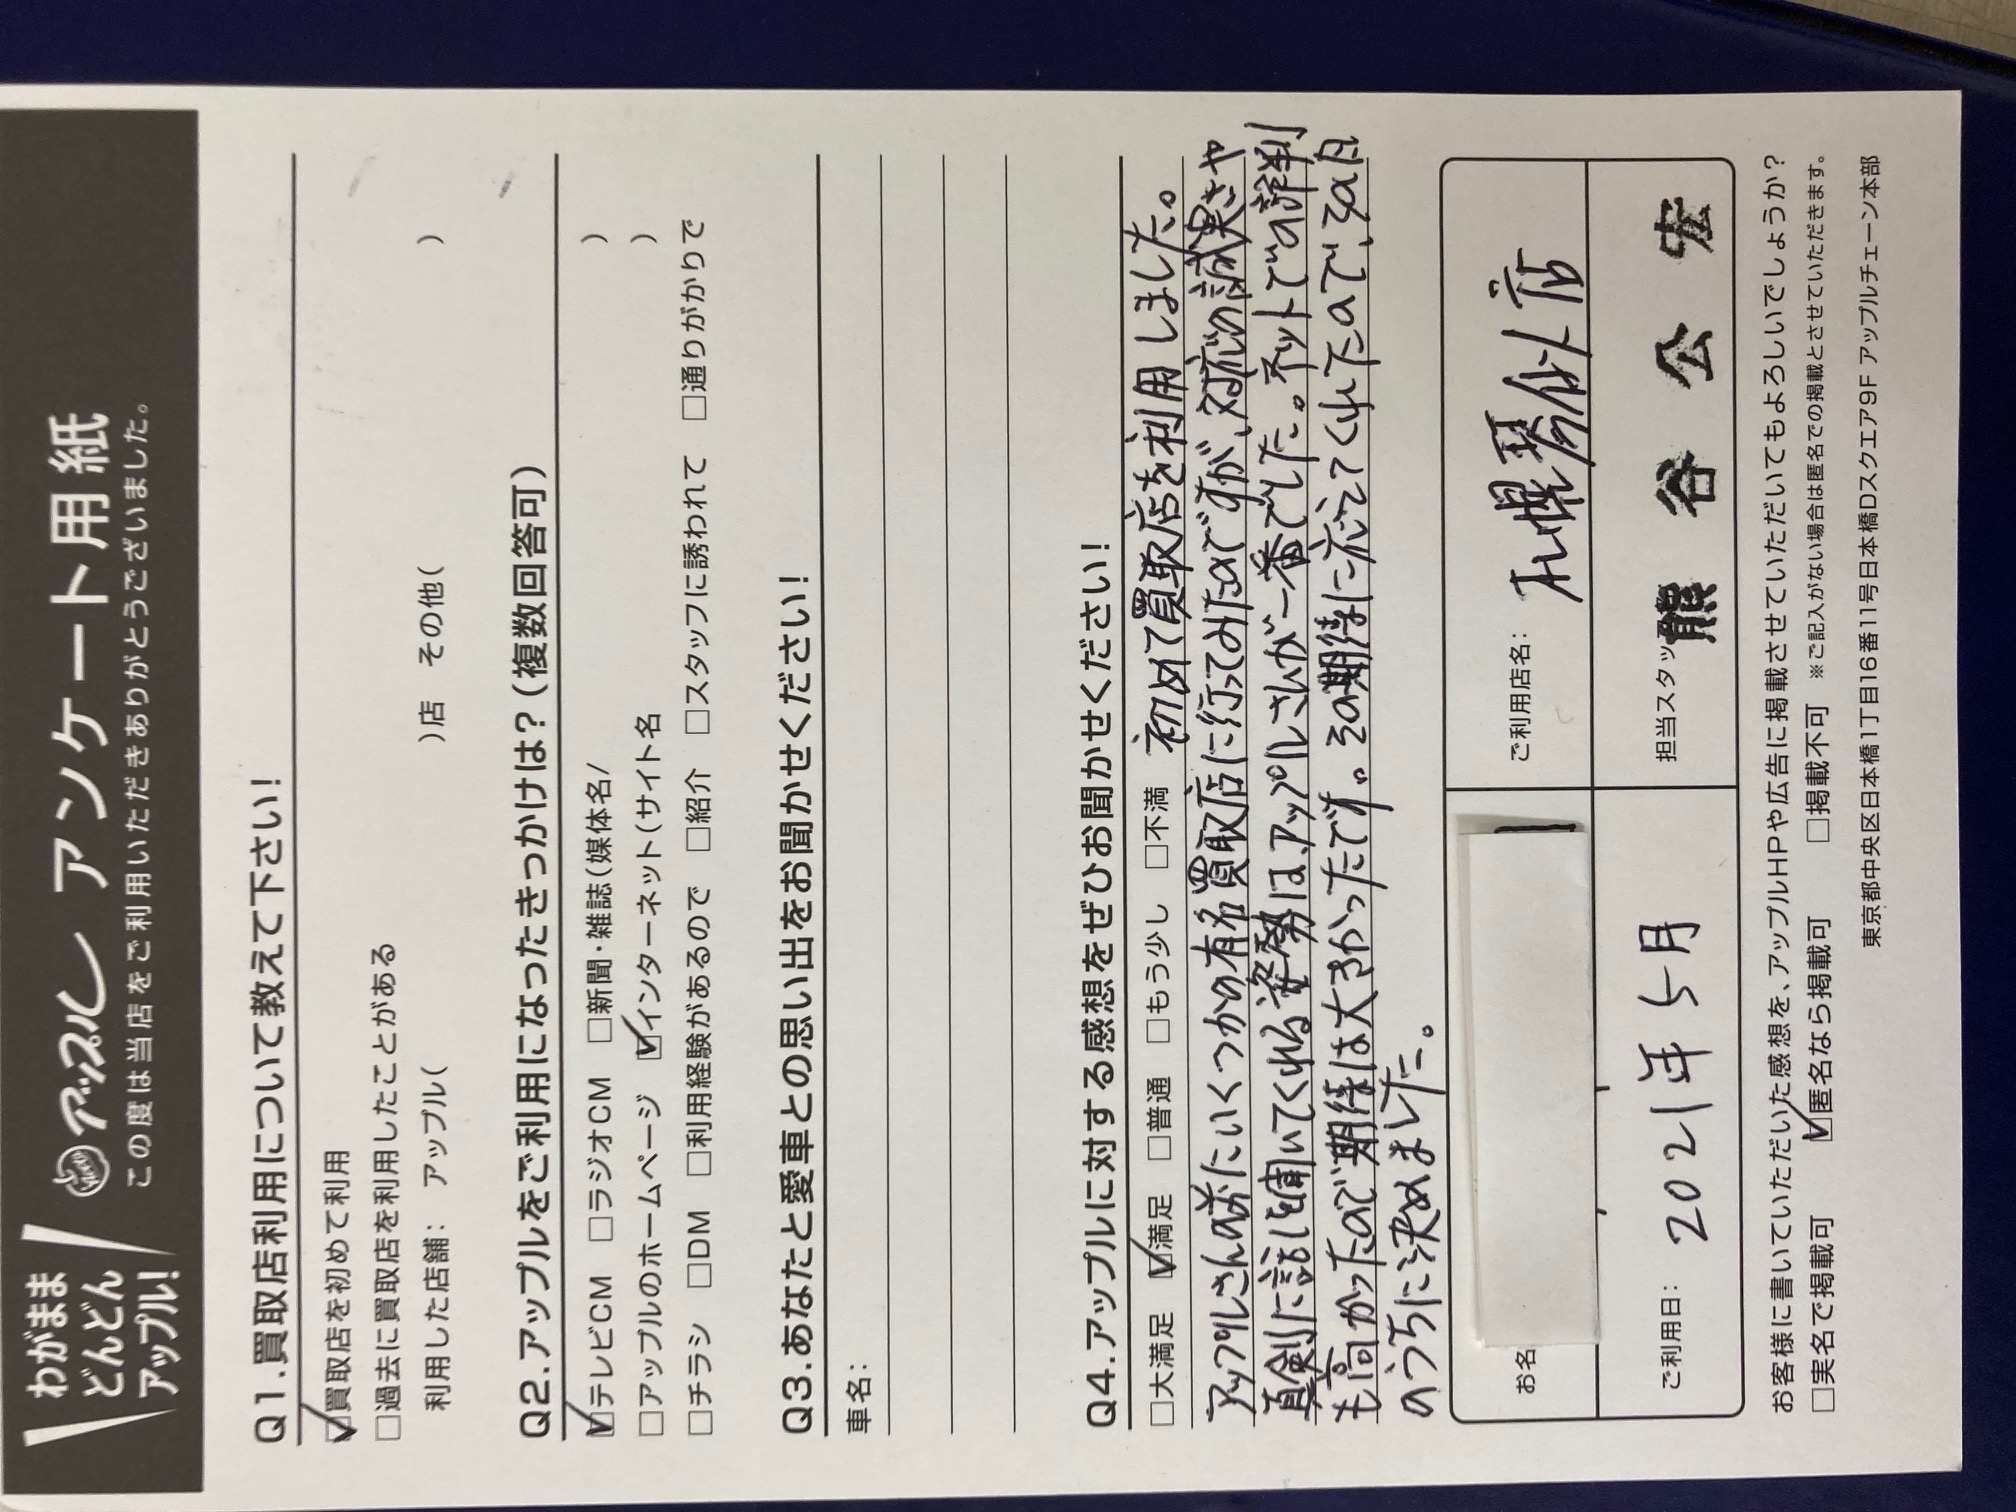 わがまま
どんどん
アップル!
アップル アンケート用紙
この度は当店をご利用いただきありがとうございました。
Q1.買取店利用について教えて下さい!
☑買取店を初めて利用
□過去に買取店を利用したことがある
利用した店舗: アップル( )店 その他( )
Q2.アップルをご利用になったきっかけは?(複数回答可)
☑テレビCM □ラジオCM □新聞・雑誌(媒体名/ )
□アップルのホームページ ☑インターネット(サイト名 )
□チラシ □DM □利用経験があるので □紹介 □スタッフに誘われて □通りがかりで
Q3.あなたと愛車との思い出をお聞かせください!
車名:
Q4.アップルに対する感想をぜひお聞かせください!
□大満足 ☑満足 □普通 □もう少し □不満 初めて買取店を利用しました。
アップルさんの様たいくつかの有名買取店に行ってみたのですが、対応の誠実さや
真剣に話しを聞いてくれる姿勢は、アップルさんが一番でした。ネットでの評判
も高かったので期待は大きかったです。その期待に応えてくれたので、その日
のうちに決めました。
お名
ご利用店名: 札幌琴似店
ご利用日: 2021年5月
担当スタッ 熊谷公宏
お客様に書いていただいた感想を、アップルHPや広告に掲載させていただいてもよろしいでしょうか?
□実名で掲載可 ☑匿名なら掲載可 □掲載不可 ※ご記入がない場合は匿名での掲載とさせていただきます。
東京都中央区日本橋1丁目16番11号日本橋Dスクエア9F アップルチェーン本部